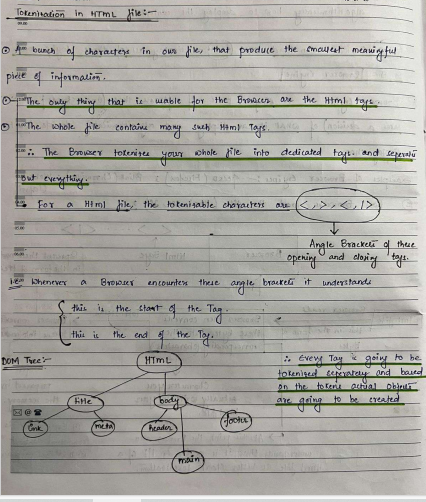 Tokenisation in HTML file:-
A bunch of characters in our file, that produce the smallest meaningful
piece of information.
The only thing that is usable for the Browser are the Html tags.
The whole file contains many such Html Tags.
∴ The Browser tokenizes your whole file into dedicated tags and seperate
out everything.
For a Html file, the tokenisable characters are <, >, </, />
Angle Brackets of these
opening and closing tags.
i.e. Whenever a Browser encounters these angle brackets it understands
{ this is the start of the Tag.
this is the end of the Tag.
DOM Tree:-
HTML
∴ Every Tag is going to be
tokenised seperately and based
on the tokens actual objects
are going to be created
title
body
link
meta
header
footer
main